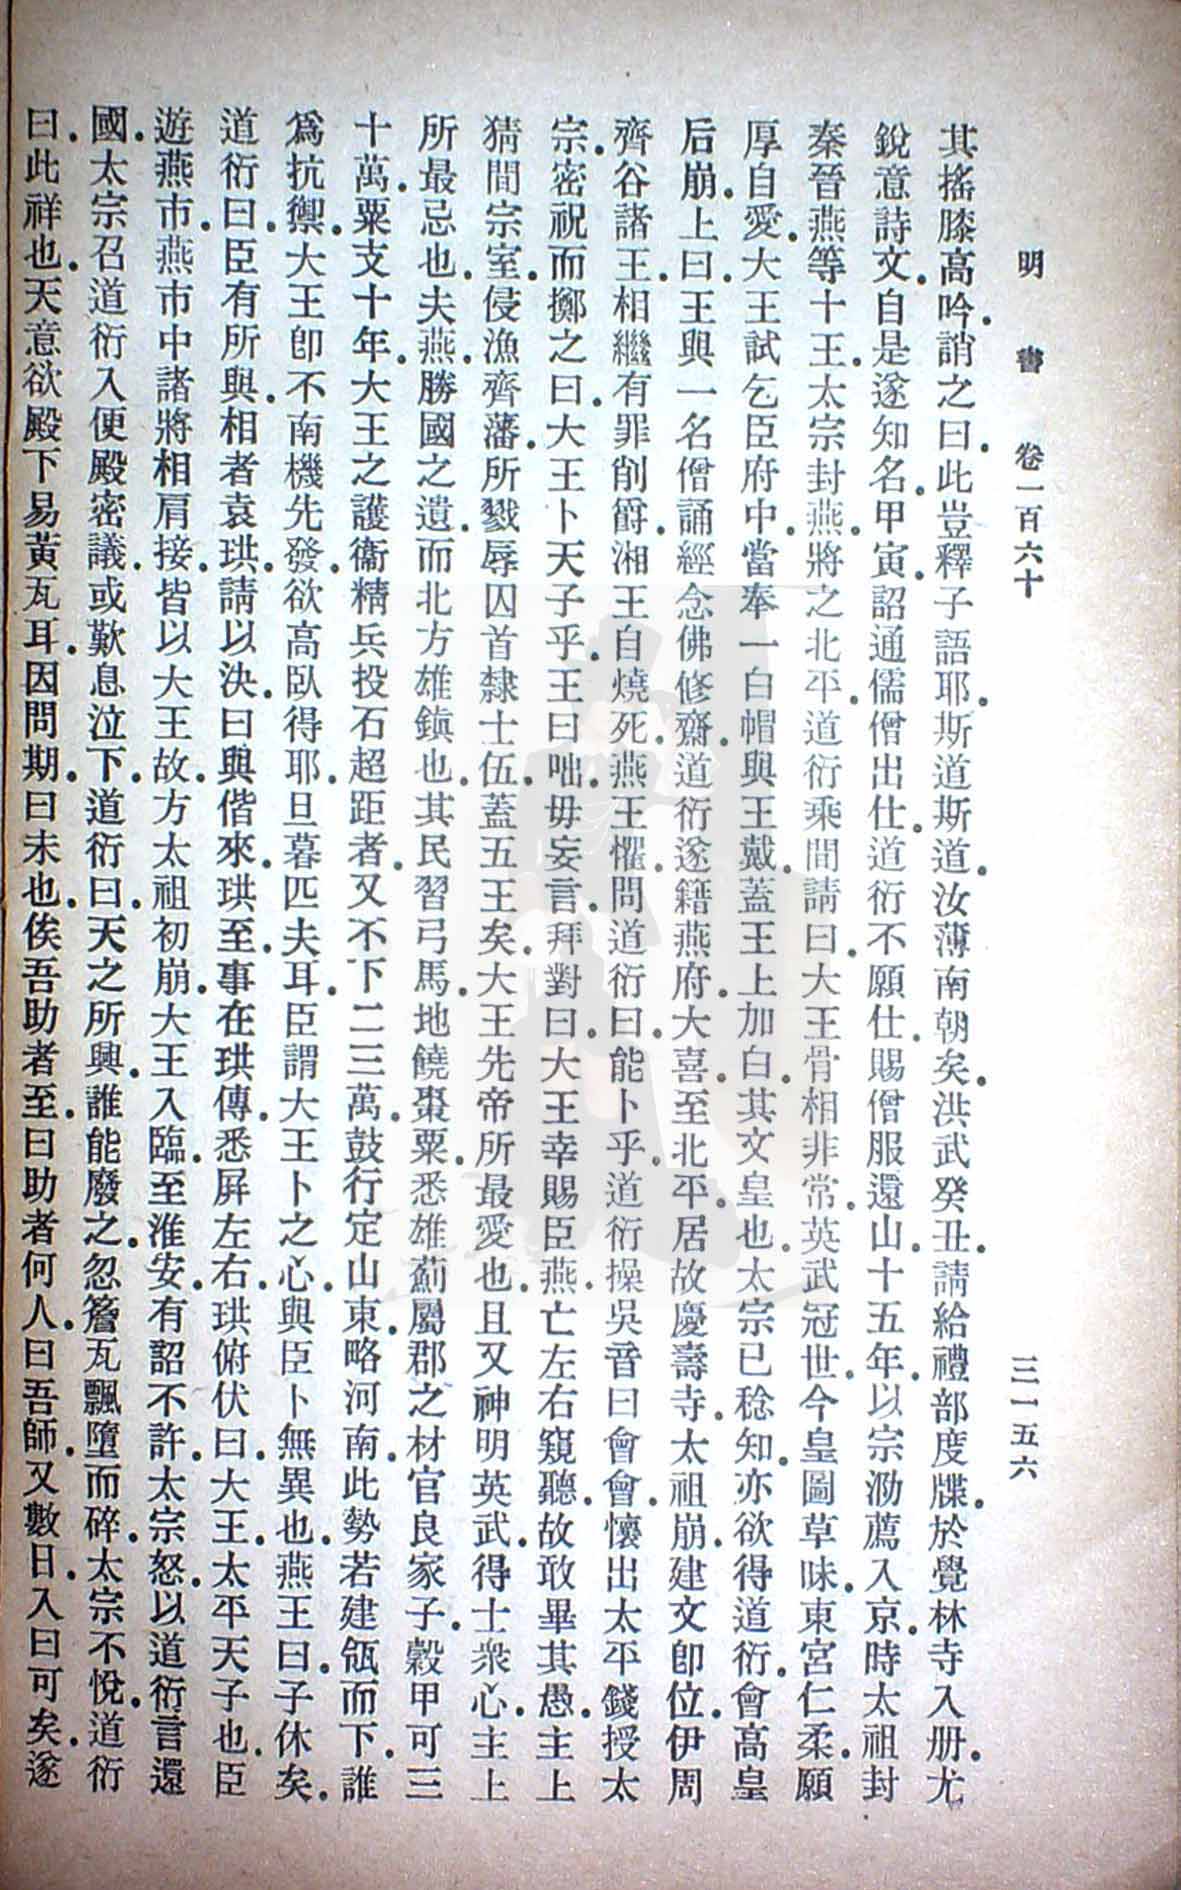 明書 卷一百六十 三一五六
其搖膝高吟誚之曰此豈釋子語耶斯道斯道汝薄南朝矣洪武癸丑請給禮部度牒於覺林寺入册尤
銳意詩文自是遂知名甲寅詔通儒僧出仕道衍不願仕賜僧服還山十五年以宗泐薦入京時太祖封
秦晉燕等十王太宗封燕將之北平道衍乘間請曰大王骨相非常英武冠世今皇圖草昧東宮仁柔願
厚自愛大王試乞臣府中當奉一白帽與王戴蓋王上加白其文皇也太宗已稔知亦欲得道衍會高皇
后崩上曰王與一名僧誦經念佛修齋道衍遂籍燕府大喜至北平居故慶壽寺太祖崩建文卽位伊周
齊谷諸王相繼有罪削爵湘王自燒死燕王懼問道衍曰能卜乎道衍操吳音曰會會懷出太平錢授太
宗密祝而擲之曰大王卜天子乎王曰咄毋妄言拜對曰大王幸賜臣燕亡左右窺聽故敢畢其愚主上
猜間宗室侵漁齊藩所戮辱囚首隸士伍蓋五王矣大王先帝所最愛也且又神明英武得士衆心主上
所最忌也夫燕勝國之遺而北方雄鎮也其民習弓馬地饒棗粟悉雄薊屬郡之材官良家子穀甲可三
十萬粟支十年大王之護衞精兵投石超距者又不下二三萬鼓行定山東略河南此勢若建瓴而下誰
爲抗禦大王卽不南機先發欲高臥得耶旦暮匹夫耳臣謂大王卜之心與臣卜無異也燕王曰子休矣
道衍曰臣有所與相者袁珙請以決曰與偕來珙至事在珙傳悉屏左右珙俯伏曰大王太平天子也臣
遊燕市燕市中諸將相肩接皆以大王故方太祖初崩大王入臨至淮安有詔不許太宗怒以道衍言還
國太宗召道衍入便殿密議或歎息泣下道衍曰天之所興誰能廢之忽簷瓦飄墮而碎太宗不悅道衍
曰此祥也天意欲殿下易黃瓦耳因問期曰未也俟吾助者至曰助者何人曰吾師又數日入曰可矣遂